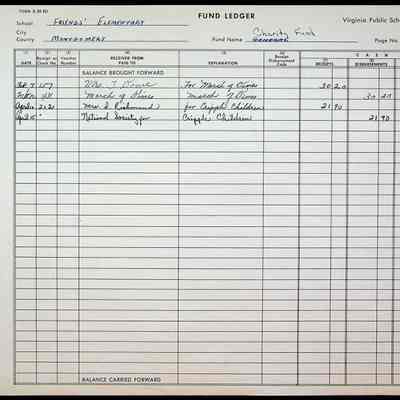 FUND LEDGER
Virginia Public Sch
School FRIENDS' ELEMENTARY
City
County MONTGOMERY
Charity Fund
Fund Name
Page No.
DATE Receipt or Check No. Voucher Number RECEIVED FROM PAID TO EXPLANATION Receipt Disbursement Code RECEIPTS DISBURSEMENTS
CASH
BALANCE BROUGHT FORWARD
Feb. 7 157 Mrs. T. For March of Dimes 30 20
March of Dimes March of Dimes 30 20
April 2121 Mrs. S. Richmond for Cripple Children 21 90
April 15 " National Society for Cripple Children 21 90
BALANCE CARRIED FORWARD